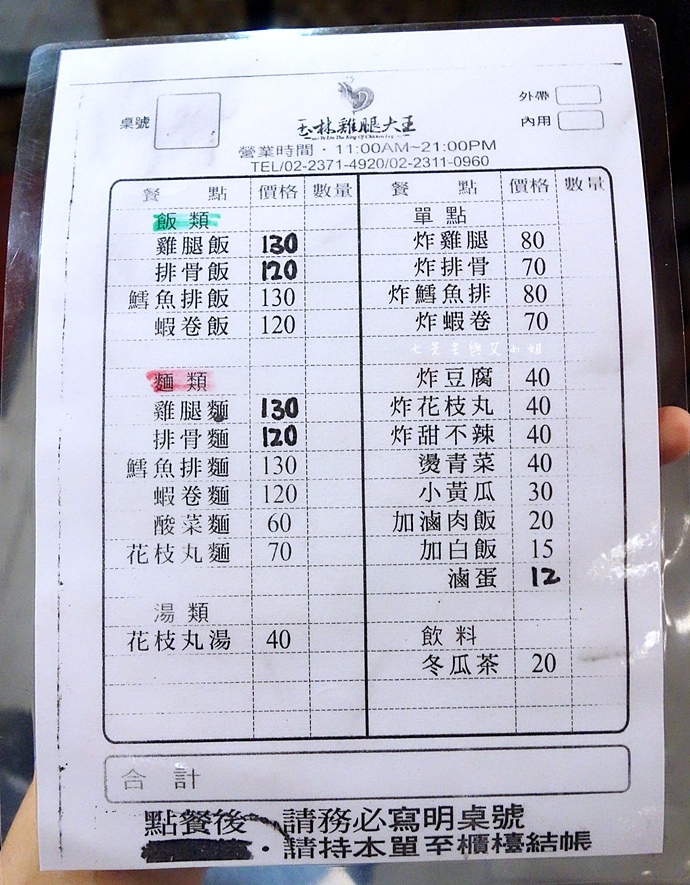 桌號
外帶
內用
玉林雞腿大王
Yu Lin The King Of Chicken Leg
營業時間·11:00AM~21:00PM
TEL/02-2371-4920/02-2311-0960
餐 點 價格 數量
飯 類
雞腿飯 130
排骨飯 120
鱈魚排飯 130
蝦卷飯 120
麵 類
雞腿麵 130
排骨麵 120
鱈魚排麵 130
蝦卷麵 120
酸菜麵 60
花枝丸麵 70
湯 類
花枝丸湯 40
餐 點 價格 數量
單 點
炸雞腿 80
炸排骨 70
炸鱈魚排 80
炸蝦卷 70
炸豆腐 40
炸花枝丸 40
炸甜不辣 40
燙青菜 40
小黃瓜 30
加滷肉飯 20
加白飯 15
滷蛋 12
飲 料
冬瓜茶 20
合 計
點餐後 請務必寫明桌號
·請持本單至櫃檯結帳